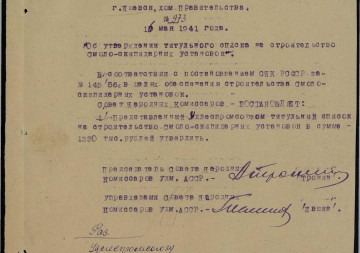 г. Ижевск, дом. Правительства.
№ 973
16 мая 1941 г.
"Об утверждении титульного списка на строительство
смоло-скипидарных установок".
В соответствии с постановлением СНК РСФСР за-
№ и в целях обеспечения строительства смоло-
скипидарных установок.
Совет Народных Комиссаров.- ПОСТАНОВЛЯЕТ:
Представленный титульный список
на строительство смоло-скипидарных установок в сумме-
тыс.рублей утвердить.
Председатель Совета Народных
Комиссаров Удм. АССР.-
/Тронин/.
Управделами Совета Народных
Комиссаров Удм. АССР.-
Раз